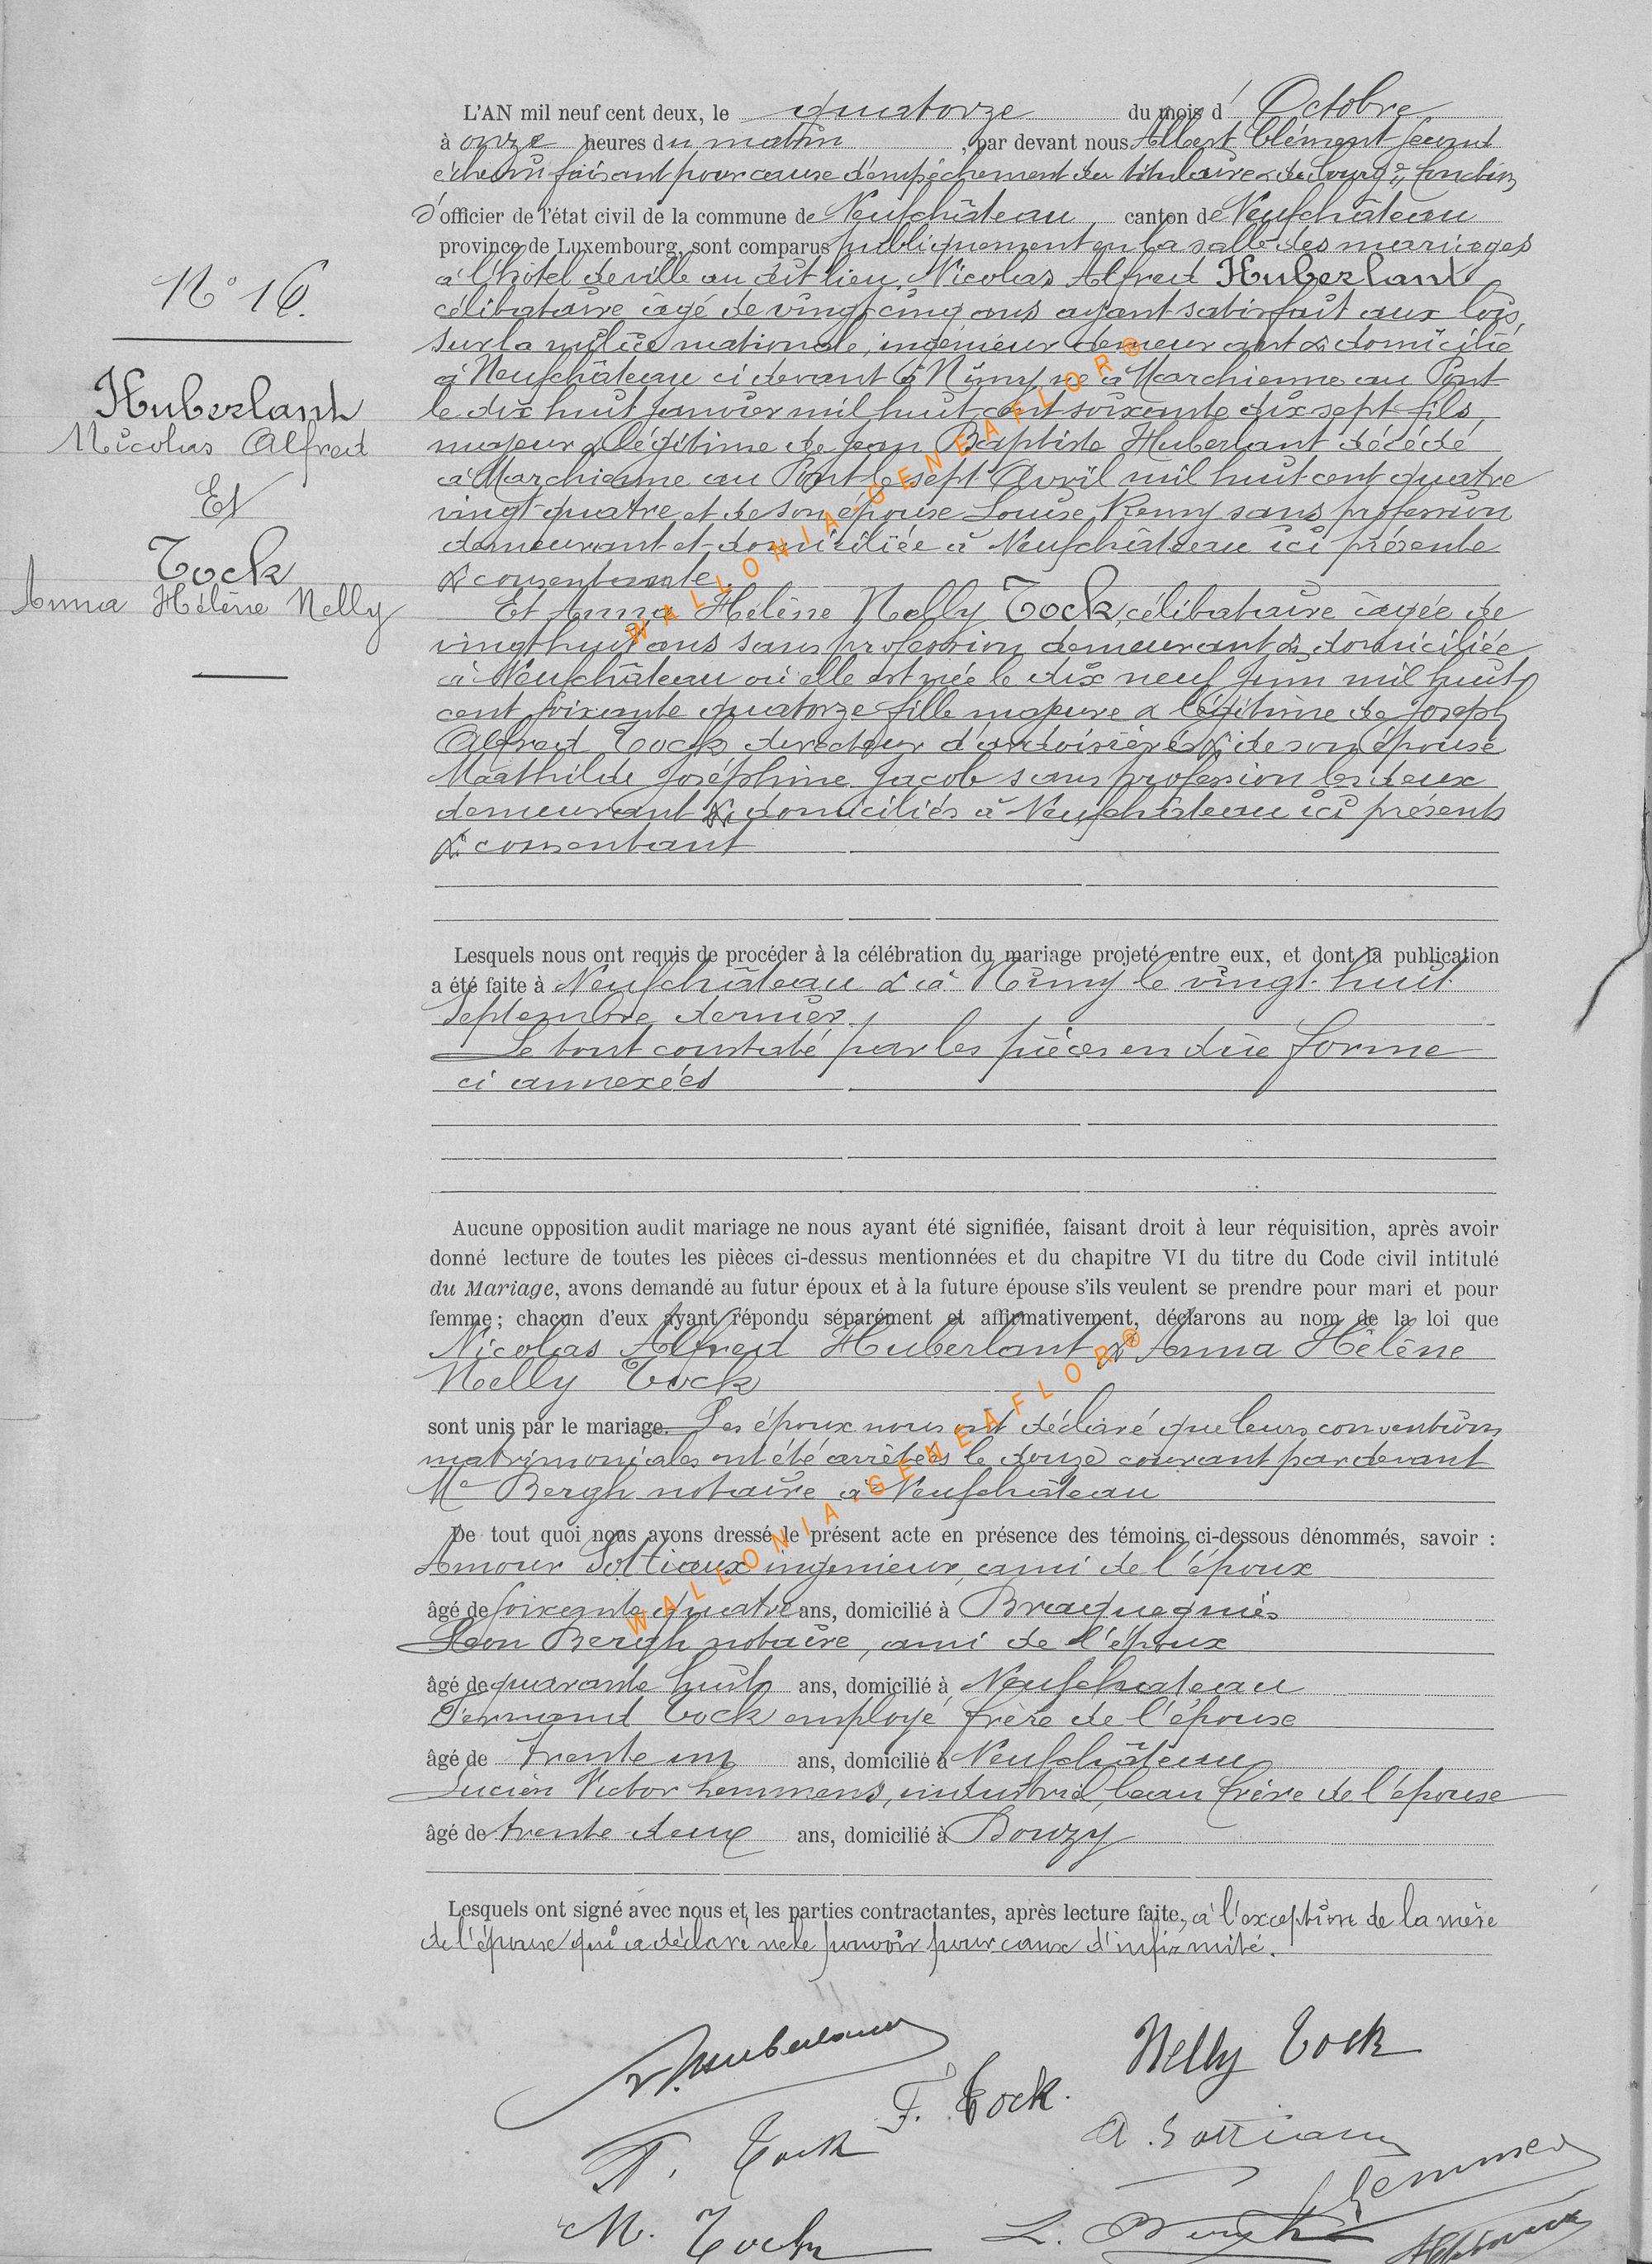 L'AN mil neuf cent deux, le quatorze du mois d' Octobre
à onze heures du matin, par devant nous Albert Clément second
échevin faisant pour cause d'empêchement du titulaire & du bourg. fonction
d'officier de l'état civil de la commune de Neufchâteau canton de Neufchâteau
province de Luxembourg, sont comparus publiquement en la salle des mariages
à l'hôtel de ville au dit lieu, Nicolas Alfred Huberlant
célibataire âgé de vingt cinq ans ayant satisfait aux lois
sur la milice nationale, ingénieur demeurant & domicilié
à Neufchâteau ci devant à Nimy né à Marchienne au Pont
le dix huit janvier mil huit cent soixante dix sept fils
majeur & légitime de Jean Baptiste Huberlant décédé
à Marchienne au Pont le sept Avril mil huit cent quatre
vingt quatre et de son épouse Louise Remy sans profession
demeurant et domiciliée à Neufchâteau ici présente
& consentante.
Et Anna Hélène Nelly Tock, célibataire âgée de
vingt huit ans sans profession demeurant & domiciliée
à Neufchâteau où elle est née le dix neuf juin mil huit
cent soixante quatorze fille majeure & légitime de Joseph
Alfred Tock directeur d'ardoisières & de son épouse
Maathilde Joséphine Jacob sans profession les deux
demeurant & domiciliés à Neufchâteau ici présents
& consentant
N° 16.
Huberlant
Nicolas Alfred
Et
Tock
Anna Hélène Nelly
Lesquels nous ont requis de procéder à la célébration du mariage projeté entre eux, et dont la publication
a été faite à Neufchâteau & à Nimy le vingt-huit
Septembre dernier.
Le tout constaté par les pièces en due forme
ci annexées
Aucune opposition audit mariage ne nous ayant été signifiée, faisant droit à leur réquisition, après avoir
donné lecture de toutes les pièces ci-dessus mentionnées et du chapitre VI du titre du Code civil intitulé
du Mariage, avons demandé au futur époux et à la future épouse s'ils veulent se prendre pour mari et pour
femme; chacun d'eux ayant répondu séparément et affirmativement, déclarons au nom de la loi que
Nicolas Alfred Huberlant & Anna Hélène
Nelly Tock
sont unis par le mariage. Les époux nous ont déclaré que leurs conventions
matrimoniales ont été arrêtées le douze courant par devant
Me Bergh notaire à Neufchâteau
De tout quoi nous avons dressé le présent acte en présence des témoins ci-dessous dénommés, savoir :
Amour Sottiaux ingénieur, ami de l'époux
âgé de soixante quatre ans, domicilié à Bracquegnies
Léon Bergh notaire, ami de l'époux
âgé de quarante huit ans, domicilié à Neufchateau
Fernand Tock employé frère de l'épouse
âgé de trente un ans, domicilié à Neufchâteau
Lucien Victor Lemmens, industriel, beau frère de l'épouse
âgé de trente deux ans, domicilié à Bouzy
Lesquels ont signé avec nous et les parties contractantes, après lecture faite, à l'exception de la mère
de l'époux qui a déclaré ne le pouvoir pour cause d'infirmité.
Huberlant
Nelly Tock
F. Tock.
A. Tock
A. Sottiaux
Lemmens
M. Tock
L. Bergh
WALLONIA-GENEAFLOR®
WALLONIA-GENEAFLOR®